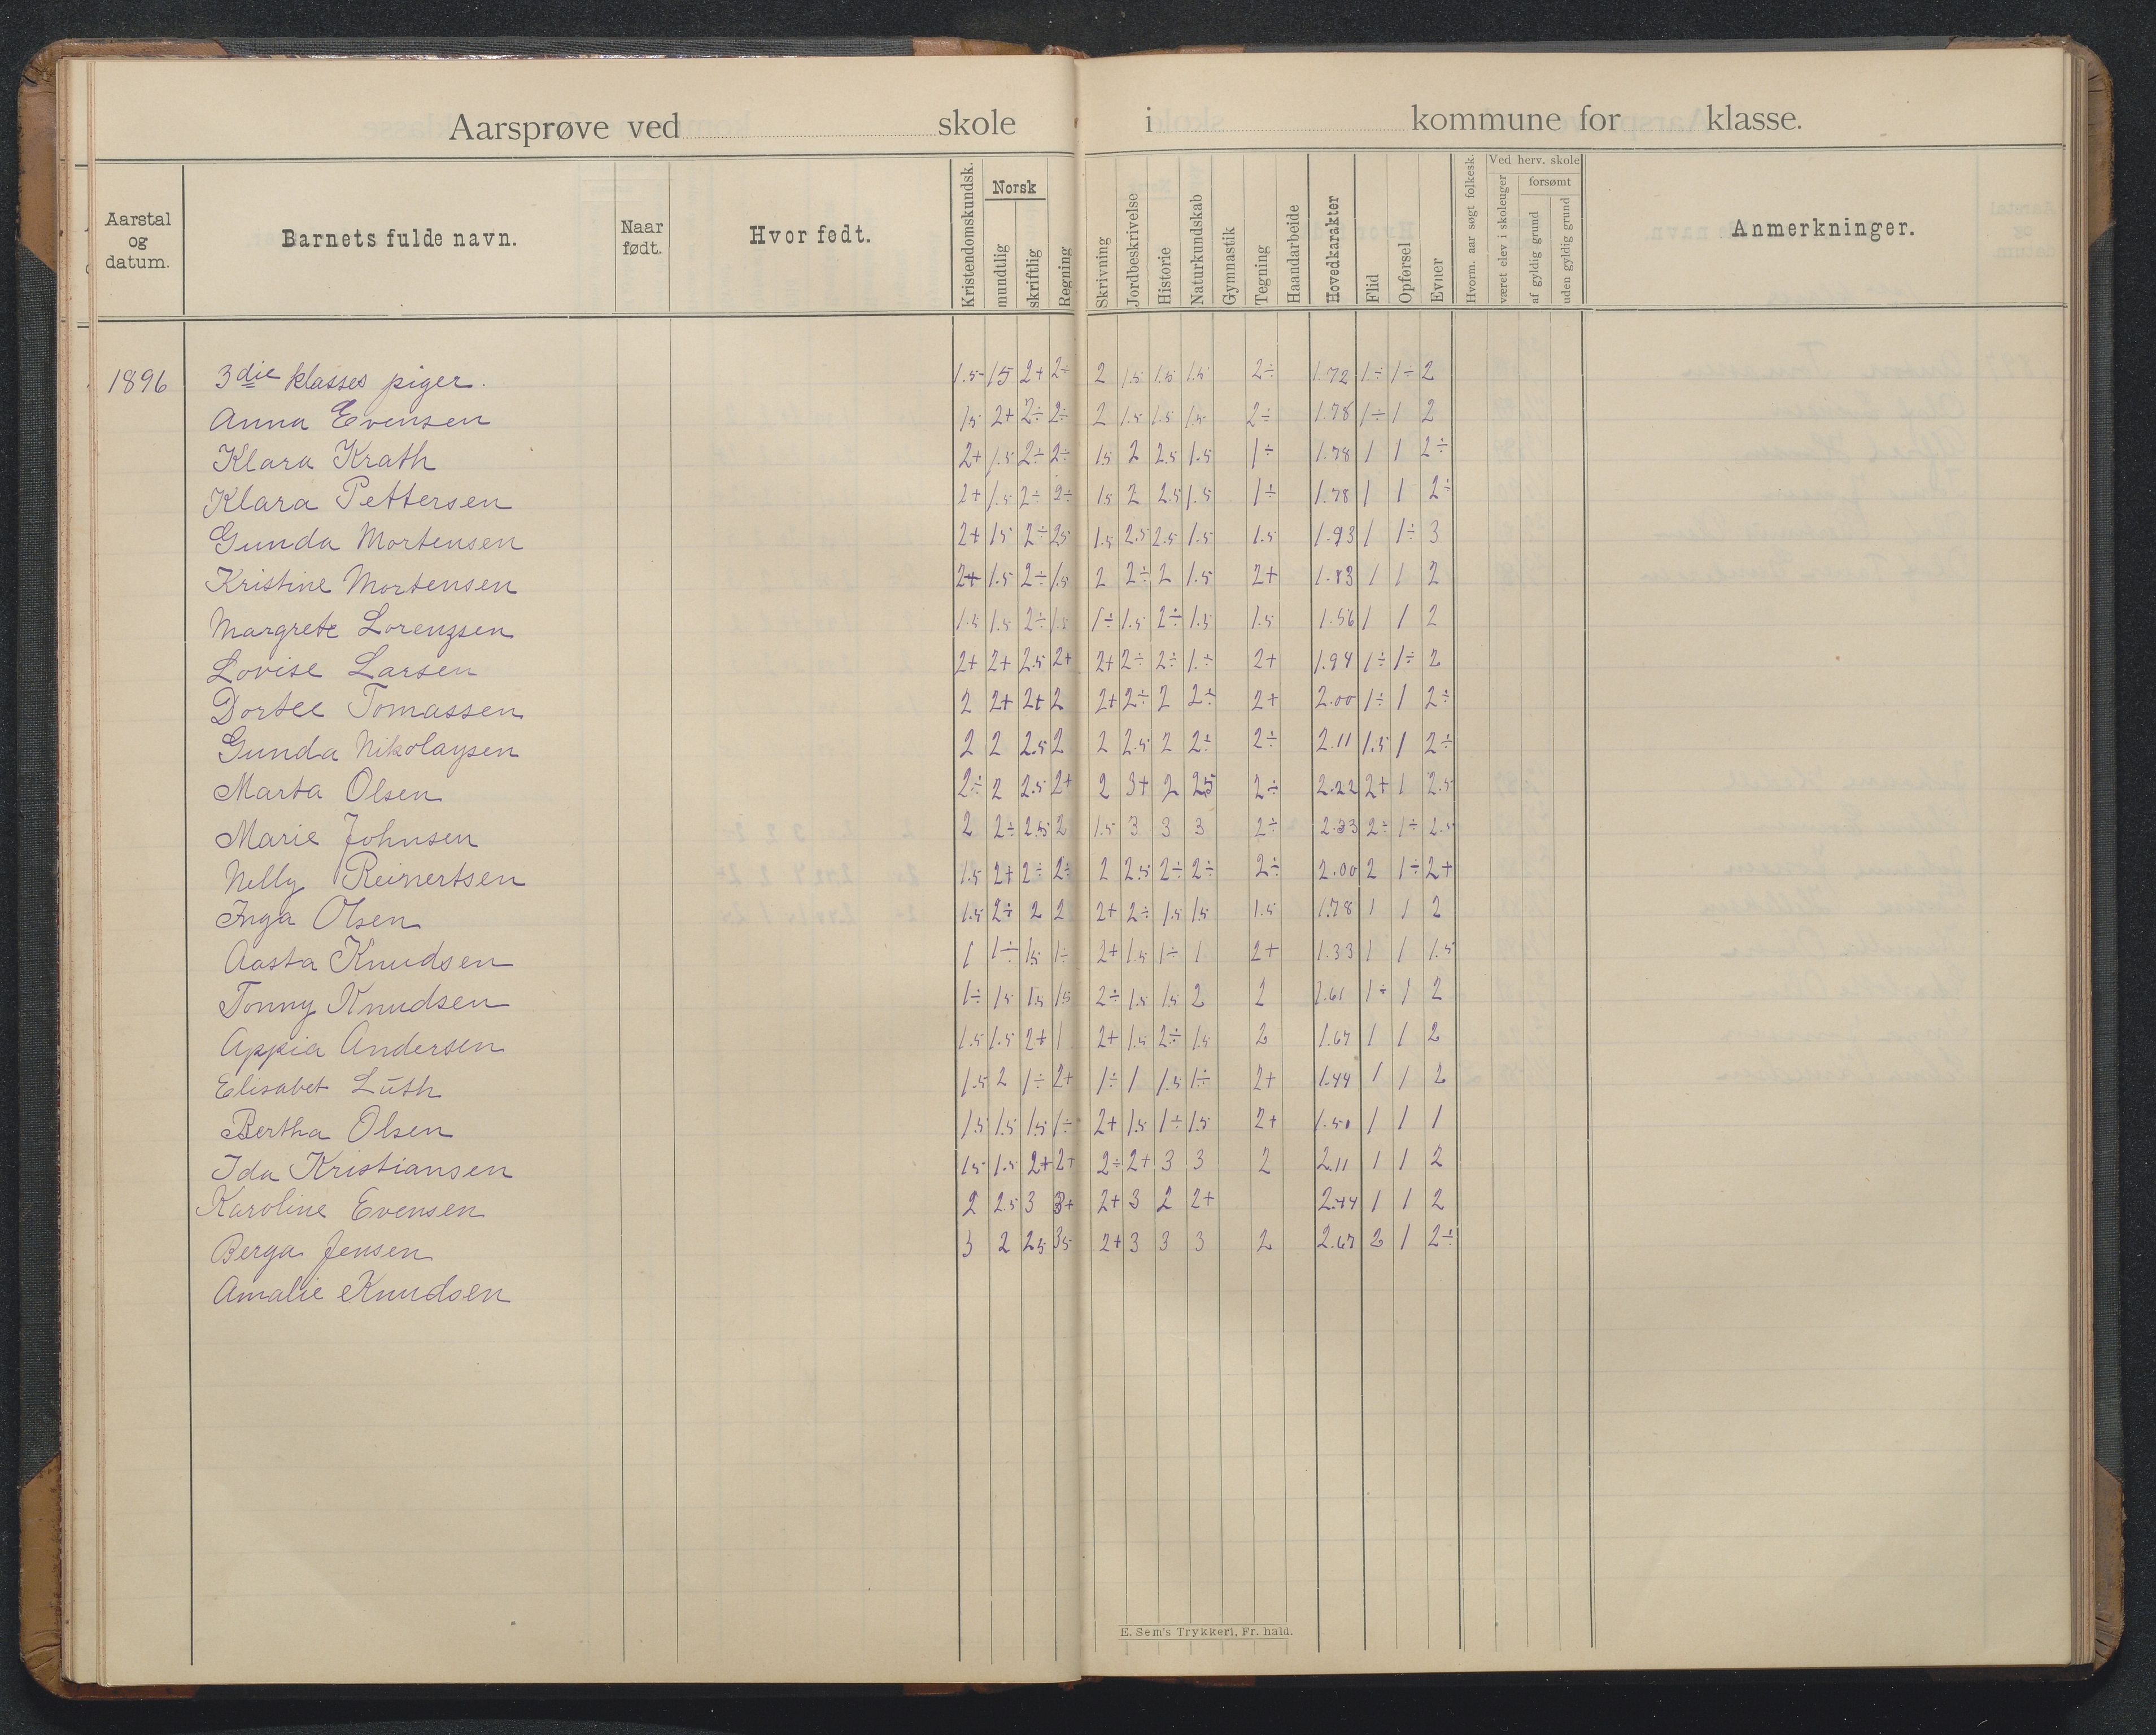 Aarsprøve ved skole i kommune for klasse.
Aarstal og datum. Barnets fulde navn. Naar født. Hvor født. Kristendomskundsk. Norsk mundtlig skriftlig Regning Skrivning Jordbeskrivelse Historie Naturkundskab Gymnastik Tegning Haandarbeide Hovedkarakter Flid Opførsel Evner Hvorm. aar søgt folkesk. Ved herv. skole været elev i skoleuger forsømt af gyldig grund uden gyldig grund Anmerkninger.
1896 3die klasses piger. 1.5 15 2+ 2÷ 2 1.5 1.5 1.5 2÷ 1.72 1÷ 1÷ 2
Anna Evensen 15 2+ 2÷ 2÷ 2 1.5 1.5 1.5 2÷ 1.78 1÷ 1 2
Klara Krath 2+ 1.5 2÷ 2÷ 15 2 2.5 1.5 1÷ 1.78 1 1 2÷
Klara Pettersen 2+ 1.5 2÷ 2÷ 15 2 2.5 1.5 1÷ 1.78 1 1 2÷
Gunda Mortensen 2+ 15 2÷ 25 1.5 2.5 2.5 1.5 1.5 1.93 1 1÷ 3
Kristine Mortensen 2+ 1.5 2÷ 1.5 2 2÷ 2 1.5 2+ 1.83 1 1 2
Margrete Lorenzsen 1.5 1.5 2÷ 1.5 1÷ 1.5 2÷ 1.5 1.5 1.56 1 1 2
Lovise Larsen 2+ 2+ 2.5 2+ 2+ 2÷ 2÷ 1.÷ 2+ 1.94 1÷ 1÷ 2
Dortee Tomassen 2 2+ 2+ 2 2+ 2÷ 2 2÷ 2+ 2.00 1÷ 1 2÷
Gunda Nikolaysen 2 2 2.5 2 2 2.5 2 2÷ 2÷ 2.11 1.5 1 2÷
Marta Olsen 2÷ 2 2.5 2+ 2 3+ 2 25 2÷ 2.22 2+ 1 2.5
Marie Johnsen 2 2÷ 2.5 2 1.5 3 3 3 2÷ 2.33 2÷ 1÷ 2.5
Nelly Reinertsen 1.5 2+ 2÷ 2÷ 2 2.5 2÷ 2÷ 2÷ 2.00 2 1÷ 2+
Inga Olsen 1.5 2÷ 2 2 2+ 2÷ 1.5 1.5 1.5 1.78 1 1 2
Aasta Knudsen 1 1÷ 1.5 1÷ 2+ 1.5 1÷ 1 2+ 1.33 1 1 1.5
Tonny Knudsen 1÷ 15 1.5 15 2÷ 1.5 1.5 2 2 1.61 1÷ 1 2
Appia Andersen 1.5 1.5 2+ 1 2+ 1.5 2÷ 1.5 2 1.67 1 1 2
Elisabet Lüth 1.5 2 1÷ 2+ 1÷ 1 1.5 1÷ 2+ 1.44 1 1 2
Bertha Olsen 1.5 1.5 1.5 1÷ 2+ 1.5 1÷ 1.5 2+ 1.50 1 1 1
Ida Kristiansen 15 1.5 2+ 2+ 2÷ 2+ 3 3 2 2.11 1 1 2
Karoline Evensen 2 2.5 3 3+ 2+ 3 2 2+ 2.44 1 1 2
Berga Jensen 3 2 25 35 2+ 3 3 3 2 2.67 2 1 2÷
Amalie Knudsen
E. Sem's Trykkeri, Fr. hald.